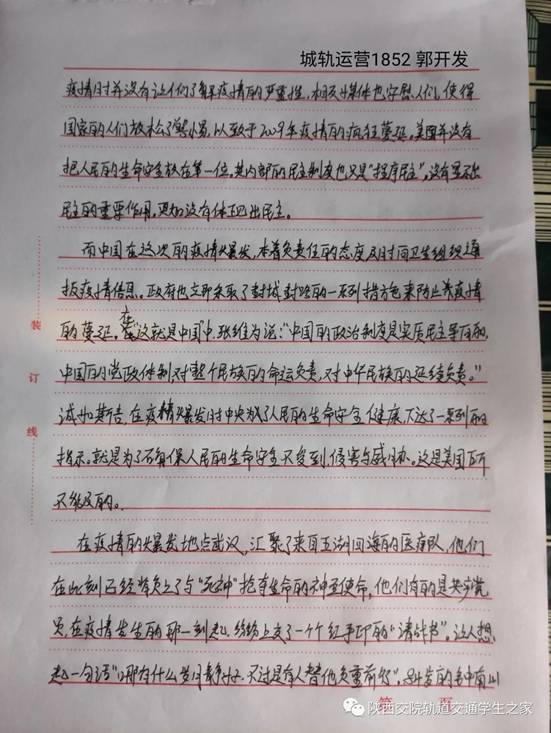 城轨运营1852 郭开发
疫情时并没有让人们了解疫情的严重性,相反媒体也安慰人们,使得
国家的人们放松了警惕,以致于2009年疫情的疯狂蔓延,美国并没有
把人民的生命安全放在第一位,其内部的民主制度也只是"程序民主",没有显示
民主的重要作用,更加没有体现出民主。
而中国在这次的疫情爆发,本着负责任的态度及时向卫生组织通
报疫情信息。政府也立即采取了封城封路的一系列措施来防止养疫情
的蔓延。在这就是中国中,张维为说:"中国的政治制度是实质民主导向的,
中国的党政体制,对整个民族的命运负责,对中华民族的延续负责。"
诚如斯言,在疫情爆发时中央为了人民的生命安全健康,下达了一系列的
指示。就是为了确保人民的生命安全不受到侵害与威胁。这是美国所
不能及的。
在疫情的爆发地点武汉,汇聚了来自五湖四海的医疗队,他们
在此刻已经肩负上了与"死神"抢夺生命的神圣使命,他们有的是共产党
员,在疫情发生的那一刻起,纷纷上交了一个个红手印的"请战书"。这让人想
起一句话"哪有什么岁月静好,不过是有人替你负重前行"。84岁的钟南山
装
订
线
第 页
陕西交院轨道交通学生之家